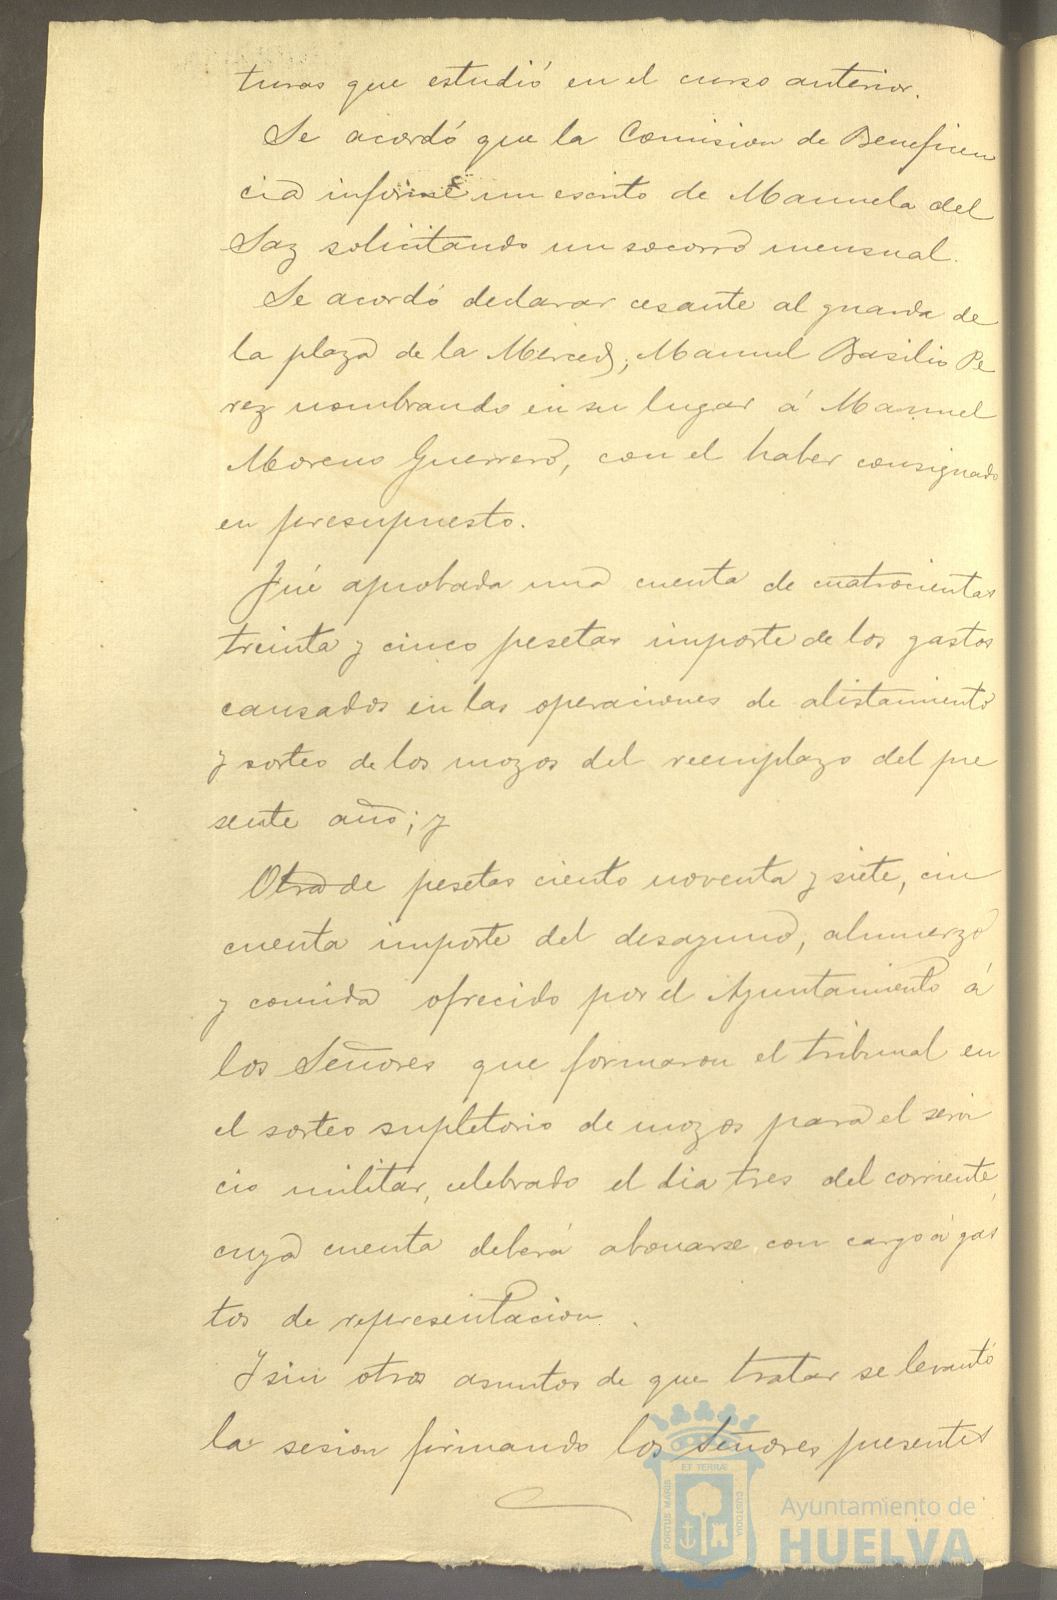 turas que estudió en el curso anterior.
Se acordó que la Comision de Beneficen
cia informe un escrito de Manuela del
Saz solicitando un socorro mensual.
Se acordó declarar cesante al guarda de
la plaza de la Merced, Manuel Basilio Pe
rez nombrando en su lugar á Manuel
Moreno Guerrero, con el haber consignado
en presupuesto.
Fué aprobada una cuenta de cuatrocientas
treinta y cinco pesetas importe de los gastos
causados en las operaciones de alistamiento
y sorteo de los mozos del reemplazo del pre
sente año; y
Otra de pesetas ciento noventa y siete, cin
cuenta importe del desayuno, almuerzo
y comida ofrecido por el Ayuntamiento á
los Señores que formaron el tribunal en
el sorteo supletorio de mozos para el servi
cio militar, celebrado el dia tres del corriente,
cuya cuenta deberá abonarse con cargo á gas
tos de representacion.
Y sin otros asuntos de que tratar se levantó
la sesion firmando los Señores presentes
ET TERRÆ
PORTUS MARIS
CUSTODIA
Ayuntamiento de
HUELVA